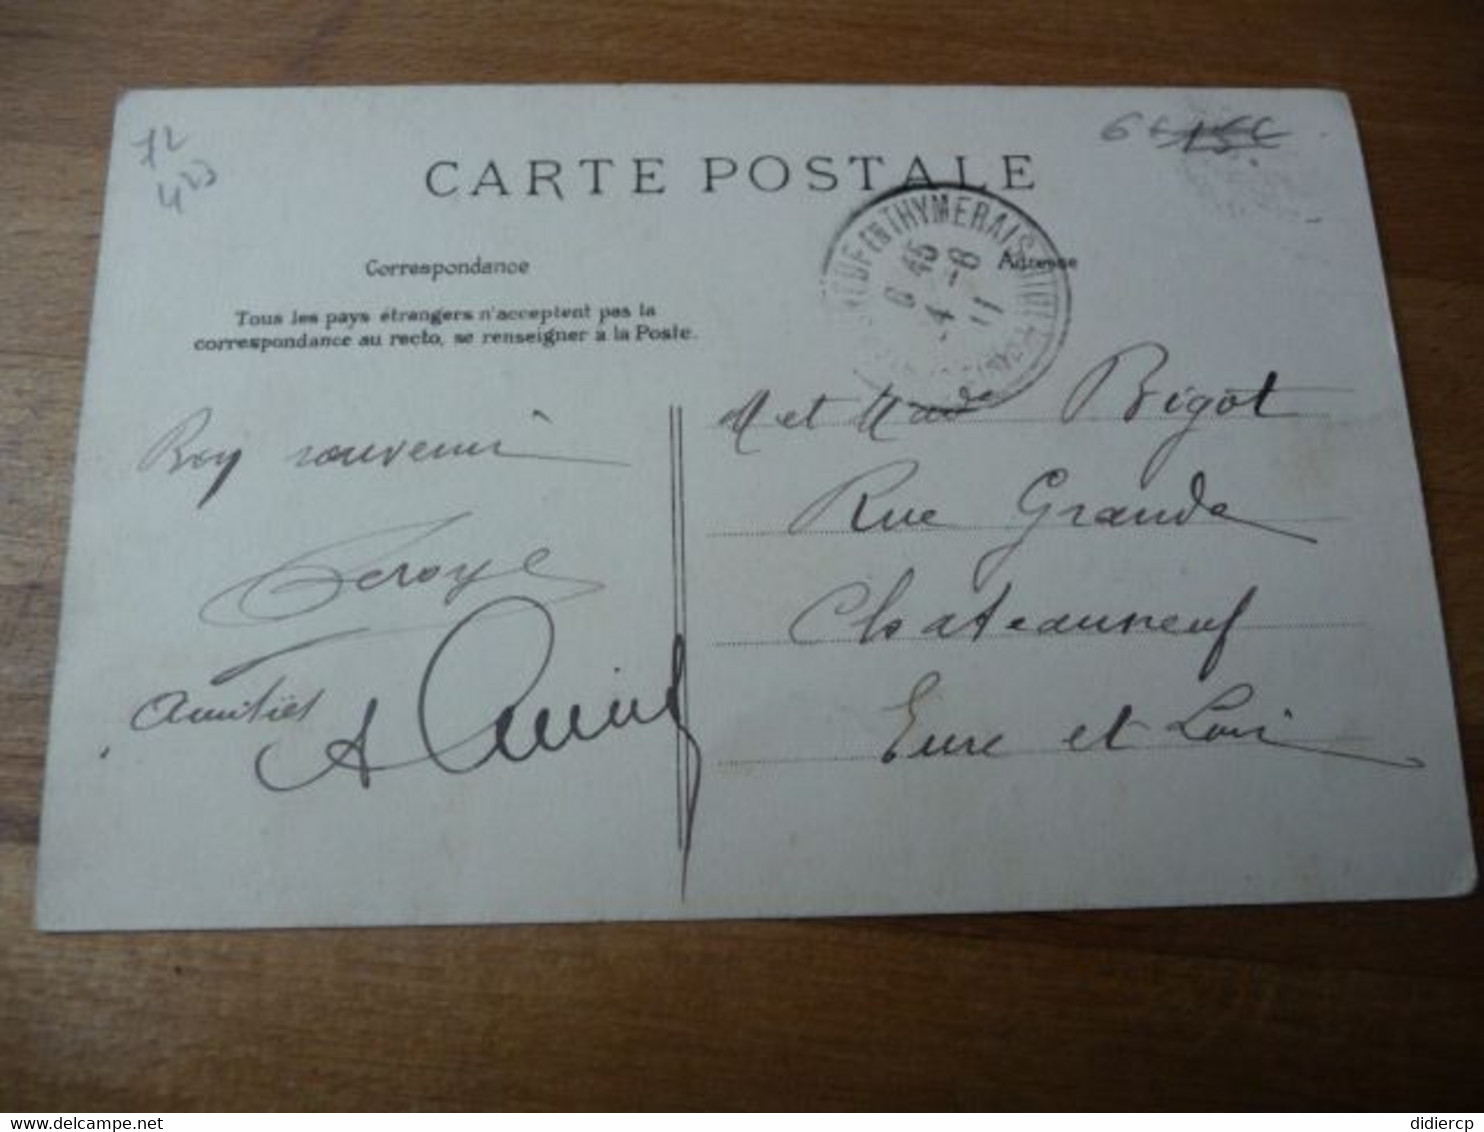 72
423
6 € 15€
CARTE POSTALE
EUF EN THYMERAIS
6 45
4 - 8
11
Correspondance
Adresse
Tous les pays étrangers n'acceptent pas la
correspondance au recto, se renseigner à la Poste.
M et Made Bigot
Rue Grande
Chateauneuf
Eure et Loir
Bon souvenir
Leroye
Amitiés
A
didiercp